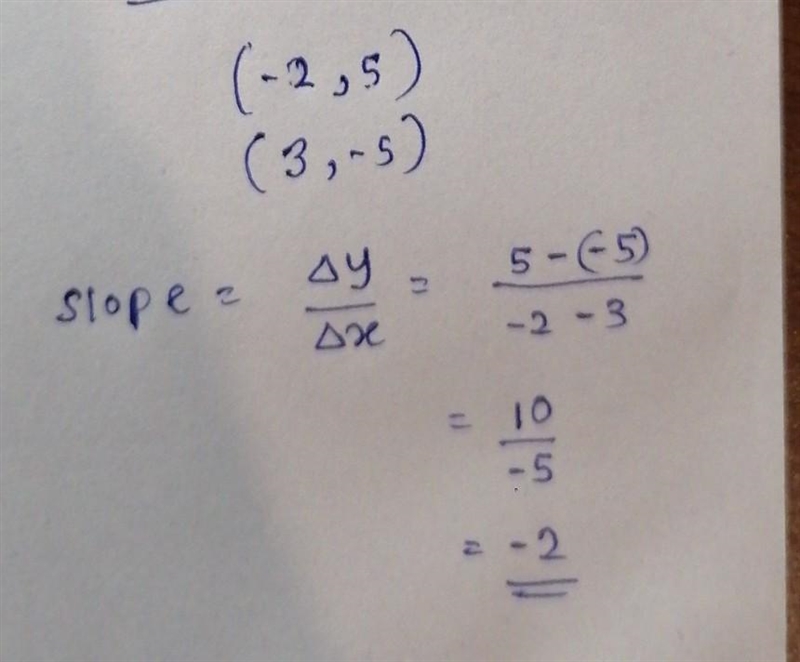 (-2, 5)
(3, -5)
slope = Δy/Δx = 5-(-5)/-2-3
= 10/-5
= -2